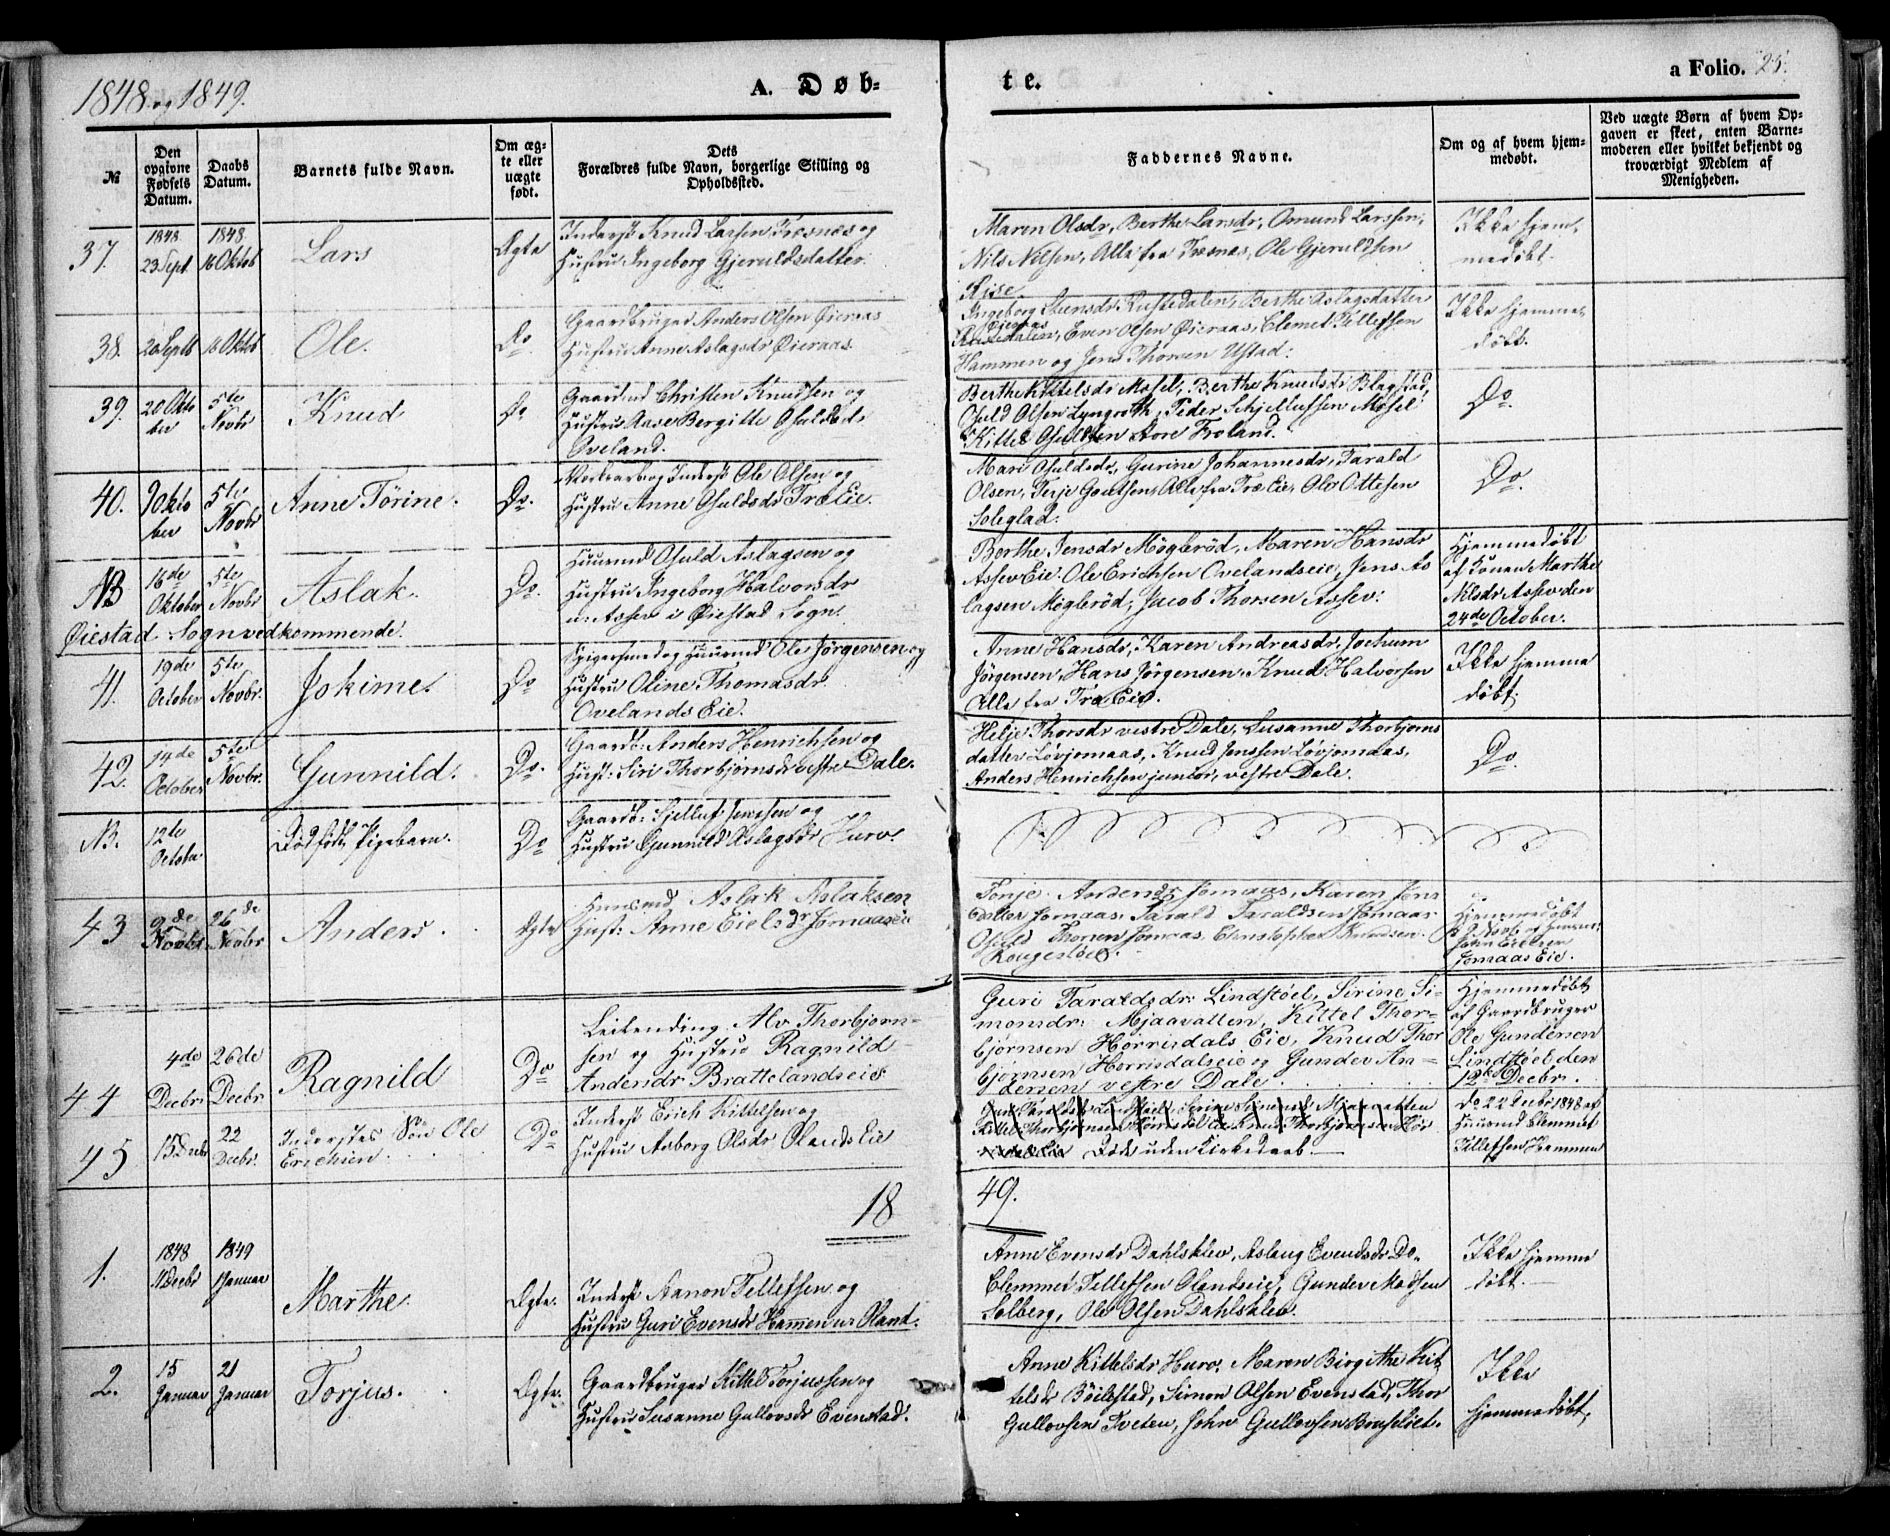 1848 og 1849.
A. Døb-
te.
a Folio. 25.
№
Den opgivne Fødsels Datum.
Daabs Datum.
Barnets fulde Navn.
Om ægte eller uægte født.
Dets
Forældres fulde Navn, borgerlige Stilling og
Opholdssted.
Faddernes Navne.
Om og af hvem hjem-
medøbt.
Ved uægte Børn af hvem Op-
gaven er skeet, enten Barne-
moderen eller hvilket bekjendt og
troværdigt Medlem af
Menigheden.
37. 1848 23 Sept. 1848 16 Oktob Lars Ægte
Inderst Knud Larsen Træsnæs og
Hustru Ingeborg Gjeruldsdatter.
Maren Olsdr, Berthe Larsdr, Omund Larssen,
Nils Nilsen, Alle fra Træsnæs, Ole Gjeruldsen
Rise
Ikke hjem
medøbt.
38. 20 Septb 16 Oktob Ole. Do
Gaardbruger Anders Olsen Øieraas
Hustru Anne Aslagsdr Øieraas.
Ingeborg Rustedalen, Berthe Aslagsdatter
Øieraas
Even Olsen Øieraas, Clemet Tellefsen
Hammen og Jens Thorsen Ustad:
Ikke hjemme
døbt.
39. 20 Okto
ber 5te
Novbr Knud Do
Gaardmd Christen Knudsen og
Hustru Aase Bergitte Osuldsd:
Oveland.
Berthe Kittelsdr Mosel, Berthe Knudsdr Blagstad,
Osuld Olsen Lyngroth, Peder Schjellufsen Mosel
Kittel Osuldsen store Froland.
Do.
40. Okto
ber 5te
Novbr Anne Tørine. Do.
og Inderst Ole Olsen og
Hustru Anne Osuldsdr Træ Eie.
Mari Osuldsdr, Gurine Johannesdr, Tarald
Olsen, Terje Goutsen, Alle fra Træ Eie, Ole Ottesen
Soleglad.
Do.
NB 16de
Oktober 5te
Novbr Aslak. Do.
Huusmd Osuld Aslagsen og
Hustru Ingeborg Halvorsdr
u: Assev i Øiestad Sogn.
Øiestad Sogn vedkommende.
Berthe Jensdr Møglerød, Maren Hansdr
Assev Eie. Ole Erichsen Ovelandseie, Jens As
lagsen Møglerød, Jacob Thorsen Assev:
Hjemmedøbt
af Konen Marthe
Nilsdr Assev den
24de October.
41. 19de
October 5te
Novbr. Jokime. Do
Spigersmed og Huusmd Ole Jørgensen og
Hustru Oline Thomasdr
Ovelands Eie.
Anne Hansdr, Karen Andreasdr, Jochum
Jørgensen, Hans Jørgensen, Knud Halvorsen
Alle fra Træ Eie.
Ikke hjemme
døbt.
42. 14de
October 5te
Novbr. Gunnild. Do.
Gaardb: Anders Henrichsen og
Hust: Siri Thorbjørnsdr vestre Dale.
Helje Thorsdr vestre Dale, Susanne Thorbjørns
datter Løvjomaas, Knud Jenssen Løvjomaas,
Anders Henrichsen junior, vestre Dale.
Do.
NB. 12te
October. Dødfødt Pigebarn. Do
Gaardb: Sjelluf Jenssen og
Hustru Gunnild Aslagsdr Hurv.
43 9de
Novbr 26de
Novbr Anders. Ægte
Huusmd Aslak Aslaksen
Hust: Anne Eielsdr Jomaas Eie
Tonje Andersdr Jomaas, Karen Jens
datter Jomaas, Tarald Taraldsen Jomaas
Osuld Thorsen Jomaas, Christopher Knudsen
Rougestøel.
Hjemmedøbt
John Eielsen
Jomaas Eie.
44 4de
Decbr. 26de
Decbr Ragnild Do
Leilending Alv Thorbjorn-
sen og Hustru Ragnild
Andersdr Brattelandseie
Guri Taraldsdr: Lindstøel, Sirine Si-
monsdr: Mjaavatten, Kittel Thor-
bjørnsen Horrisdals Eie, Knud Thor
bjørnsen Horrisdalseie og Gunder An-
dersen vestre Dale
Hjemmedøbt
af Gaardbruger
Ole Gundersen
Lindstøel den
12te Decbr.
45 15 Decbr 22
Decbr. Inderstes Søn Ole
Erichsen Do
Inderst Erich Kittelsen og
Hustru Aaborg Olsdr Olands Eie
Guri Taraldsd Lindstøel, Sirine Simonsd Mjaavatten
Kittel Thorbjørnsen Knud Thorbjørnsen Hor
Død uden Kirkedaab.
Do 22 Decbr 1848 af
Huusmd Clemmet
Tellefsen Hammen
18
49.
1. 1848
11 Decbr 1849
1 Januar Marthe. Ægte.
Inderst Aanon Tellefsen og
Hustru Guri Evensdr Hammen u: Oland.
Anne Evensdr Dahlsklev, Aslaug Evendsdr Do.
Clemmet Tellefsen Olandseie, Gunder Madsen
Solberg, Ole Olsen Dahlsklev.
Ikke hjemme
døbt.
2. 15
Januar 21
Januar Torjus. Ægte.
Gaardbruger Kittel Torjussen og
Hustru Susanne Gullovsdr Evenstad.
Anne Kittelsdr Hurv, Maren Birgithe Kit
telsdr Bøilestad, Simon Olsen Evenstad, Thor
Gullovsen Tveten, John Gullovsen
Ikke
hjemmedøbt.